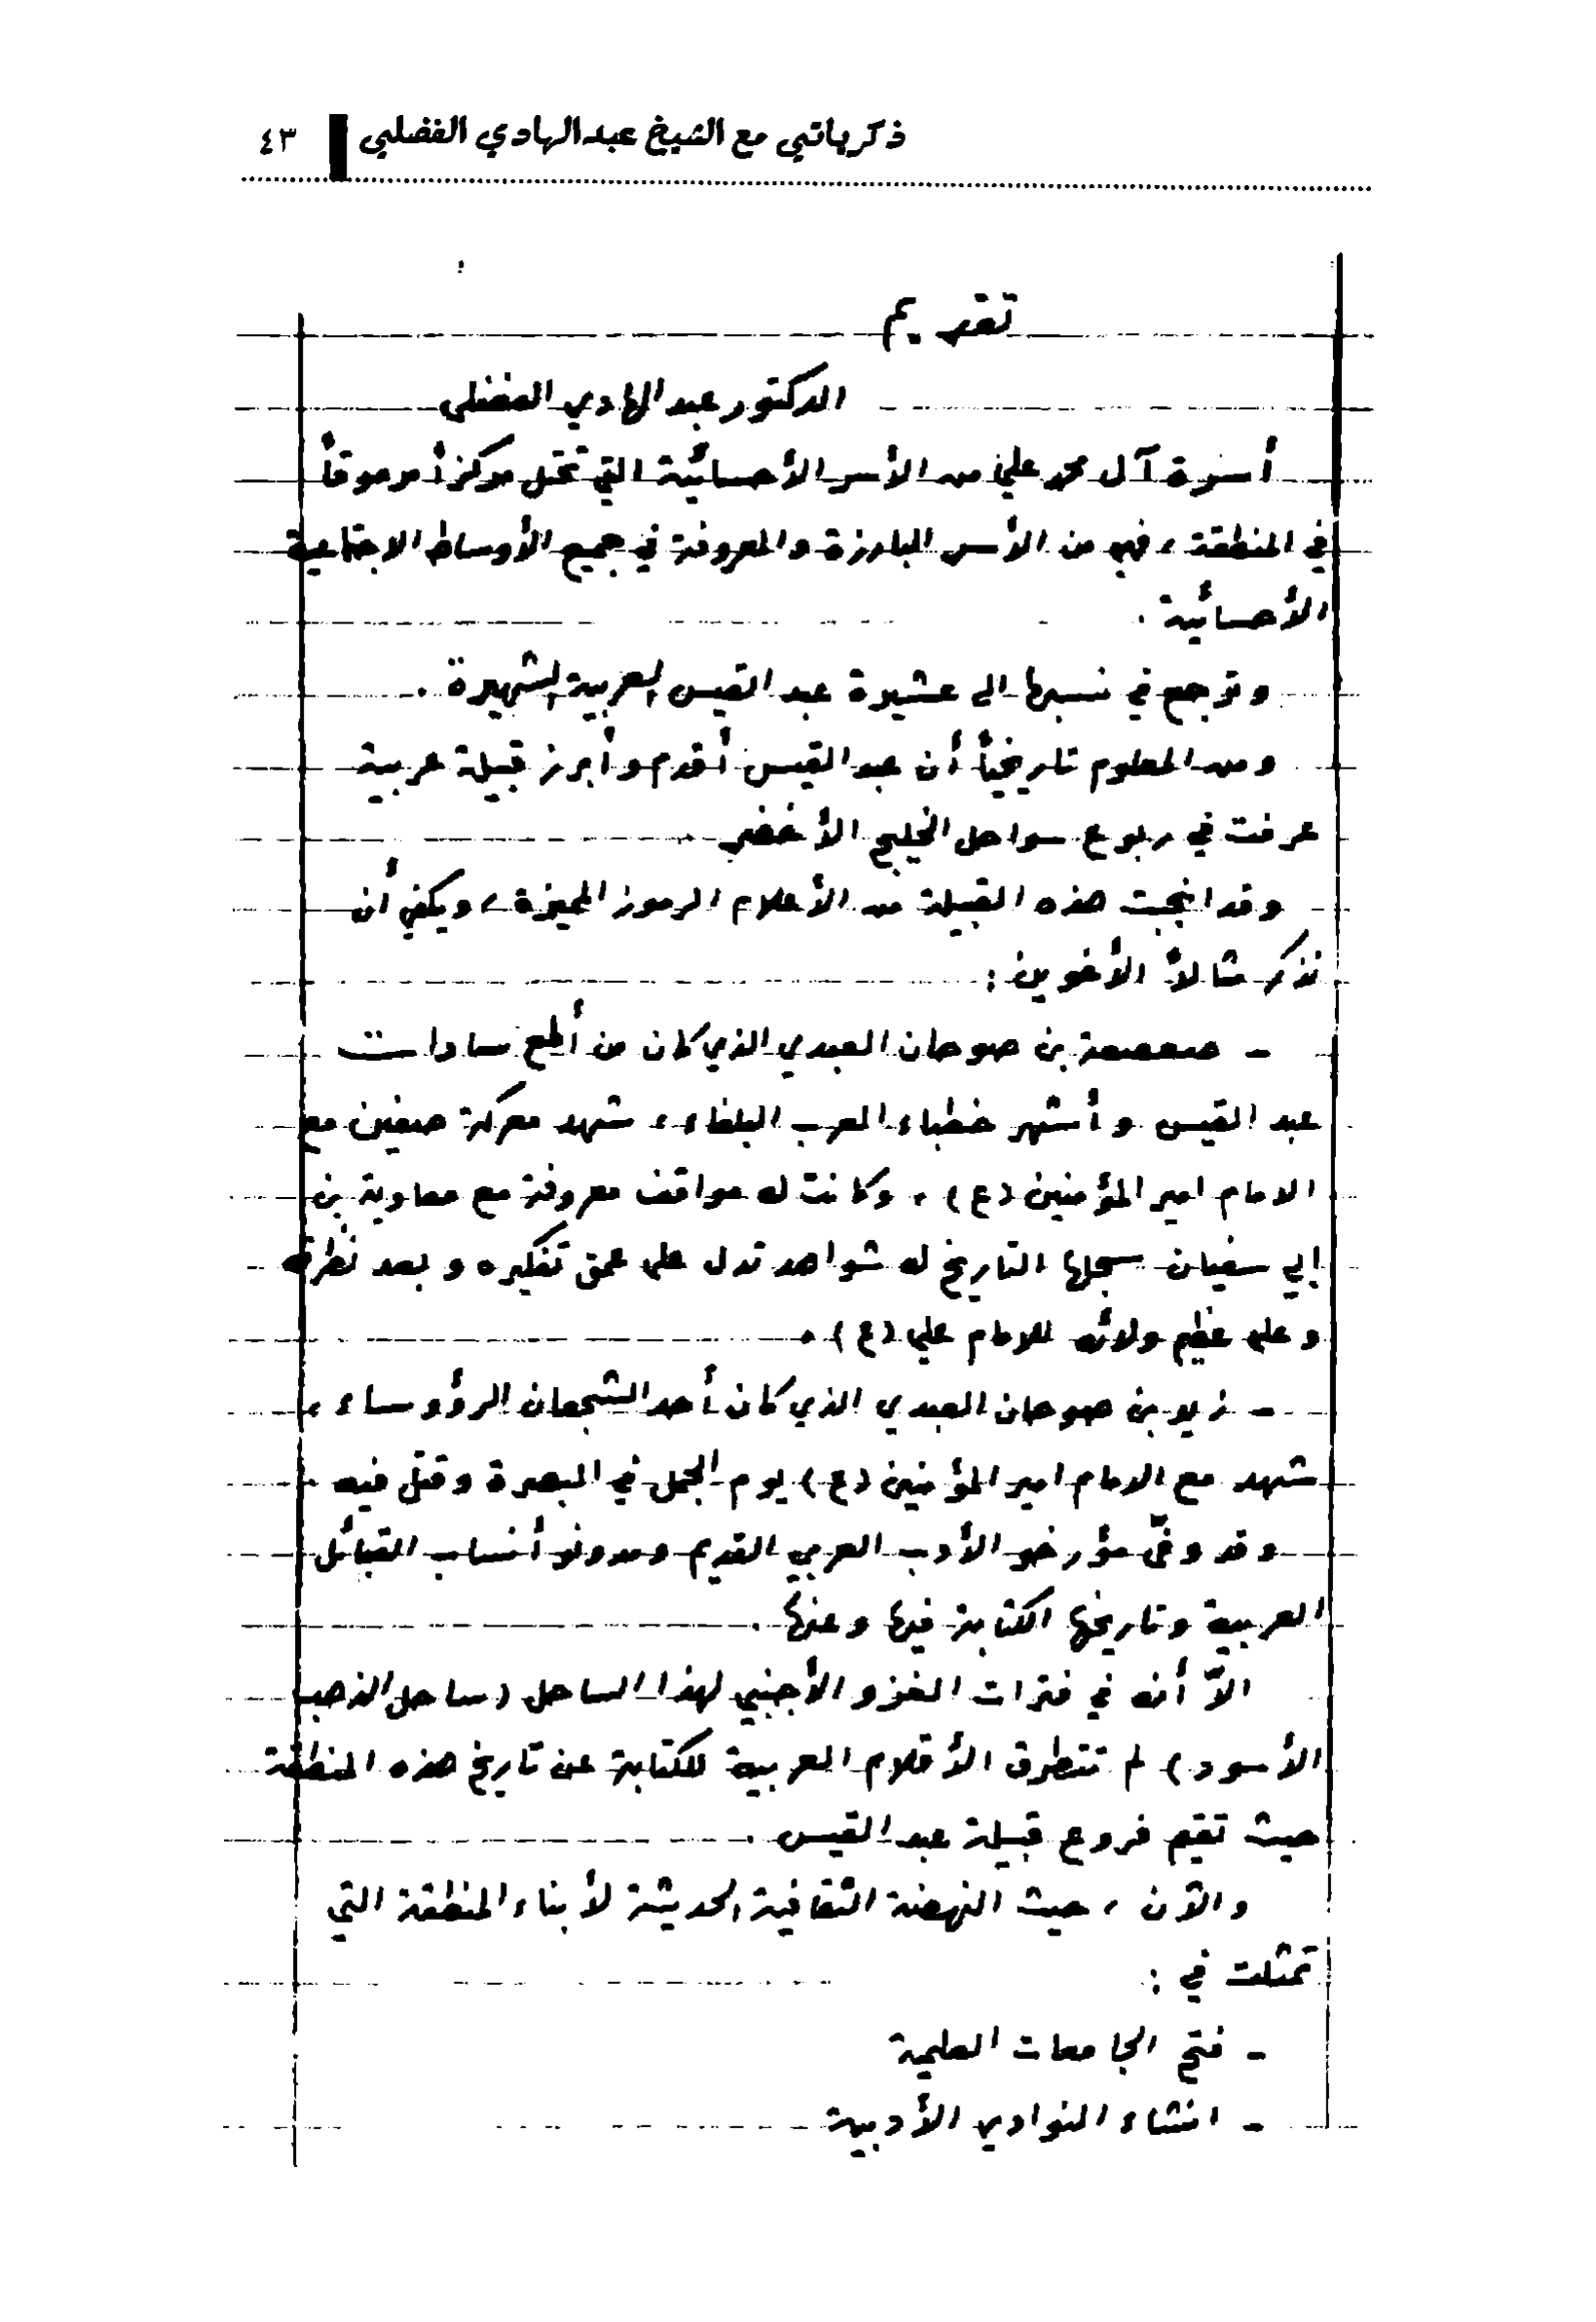 ذكرياتي مع الشيخ عبدالهادي الفضلي ٤٣
تقديم
الدكتور عبد الهادي الفضلي
أسرة آل محمد علي من الأسر الأحسائية التي تحتل مركزاً مرموقاً
في المنطقة ، فهي من الأسر البارزة والمعروفة في جميع الأوساط الاجتماعية
الأحسائية .
وترجع في نسبها الى عشيرة عبد القيس العربية الشهيرة .
ومن المعلوم تاريخياً أن عبد القيس أقدم وأبرز قبيلة عربية
عرفت في ربوع سواحل الخليج الأخضر .
وقد انجبت هذه القبيلة من الأعلام الرموز المميزة ، ويكفي أن
نذكر مثالاً الأخوين :
- صعصعة بن صوحان العبدي الذي كان من ألمع سادات
عبد القيس وأشهر خطباء العرب البلغاء ، شهد معركة صفين مع
الامام امير المؤمنين (ع) ، وكانت له مواقف معروفة مع معاوية بن
ابي سفيان سجلها التاريخ له شواهد تدل على عمق تفكيره وبعد نظرته
وعلى عظيم ولائه للامام علي (ع) .
- زيد بن صوحان العبدي الذي كان أحد الشجعان الرؤوساء ،
شهد مع الامام امير المؤمنين (ع) يوم الجمل في البصرة وقتل فيه .
وقد وفّى مؤرخو الأدب العربي القديم ومدونو أنساب القبائل
العربية وتاريخها الكتابة فيها وعنها .
الاّ أنه في فترات الغزو الأجنبي لهذا الساحل (ساحل الذهب
الأسود) لم تتطرق الأقلام العربية للكتابة عن تاريخ هذه المنطقة
حيث تقيم فروع قبيلة عبد القيس .
والآن ، حيث النهضة الثقافية الحديثة لأبناء المنطقة التي
تمثلت في :
- فتح الجامعات العلمية
- انشاء النوادي الأدبية